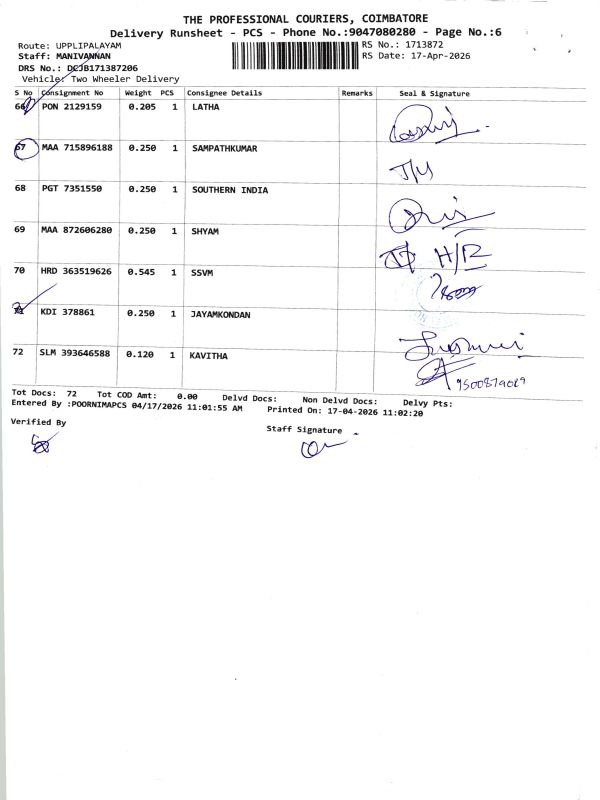 THE PROFESSIONAL COURIERS, COIMBATORE
Delivery Runsheet - PCS - Phone No.:9047080280 - Page No.:6
Route: UPPLIPALAYAM
RS No.: 1713872
Staff: MANIVANNAN
RS Date: 17-Apr-2026
DRS No.: DCJB171387206
Vehicle: Two Wheeler Delivery
S No Consignment No Weight PCS Consignee Details Remarks Seal & Signature
66 PON 2129159 0.205 1 LATHA
67 MAA 715896188 0.250 1 SAMPATHKUMAR
68 PGT 7351550 0.250 1 SOUTHERN INDIA
69 MAA 872606280 0.250 1 SHYAM
H/R
70 HRD 363519626 0.545 1 SSVM
71 KDI 378861 0.250 1 JAYAMKONDAN
72 SLM 393646588 0.120 1 KAVITHA
Tot Docs: 72 Tot COD Amt: 0.00 Delvd Docs: Non Delvd Docs: Delvy Pts:
Entered By :POORNIMAPCS 04/17/2026 11:01:55 AM Printed On: 17-04-2026 11:02:20
Verified By
Staff Signature